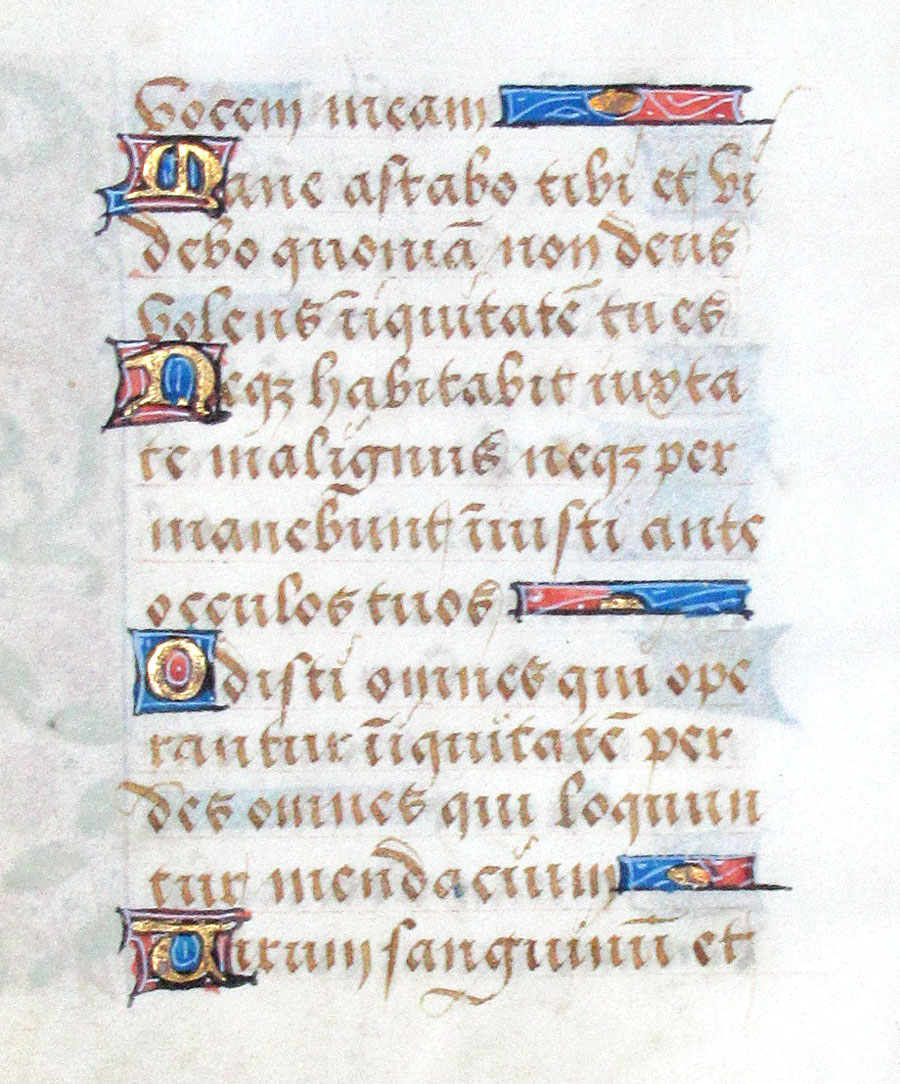 vocem meam
Mane astabo tibi et vi
debo quoniā non deus
volens īiquitatē tu es
Neqꝫ habitabit iuxta
te malignus neqꝫ per
manebunt īiusti ante
occulos tuos
Odisti omnes qui ope
rantur īiquitatē per
des omnes qui loquun
tur mendacium
Uirum sanguinuū et